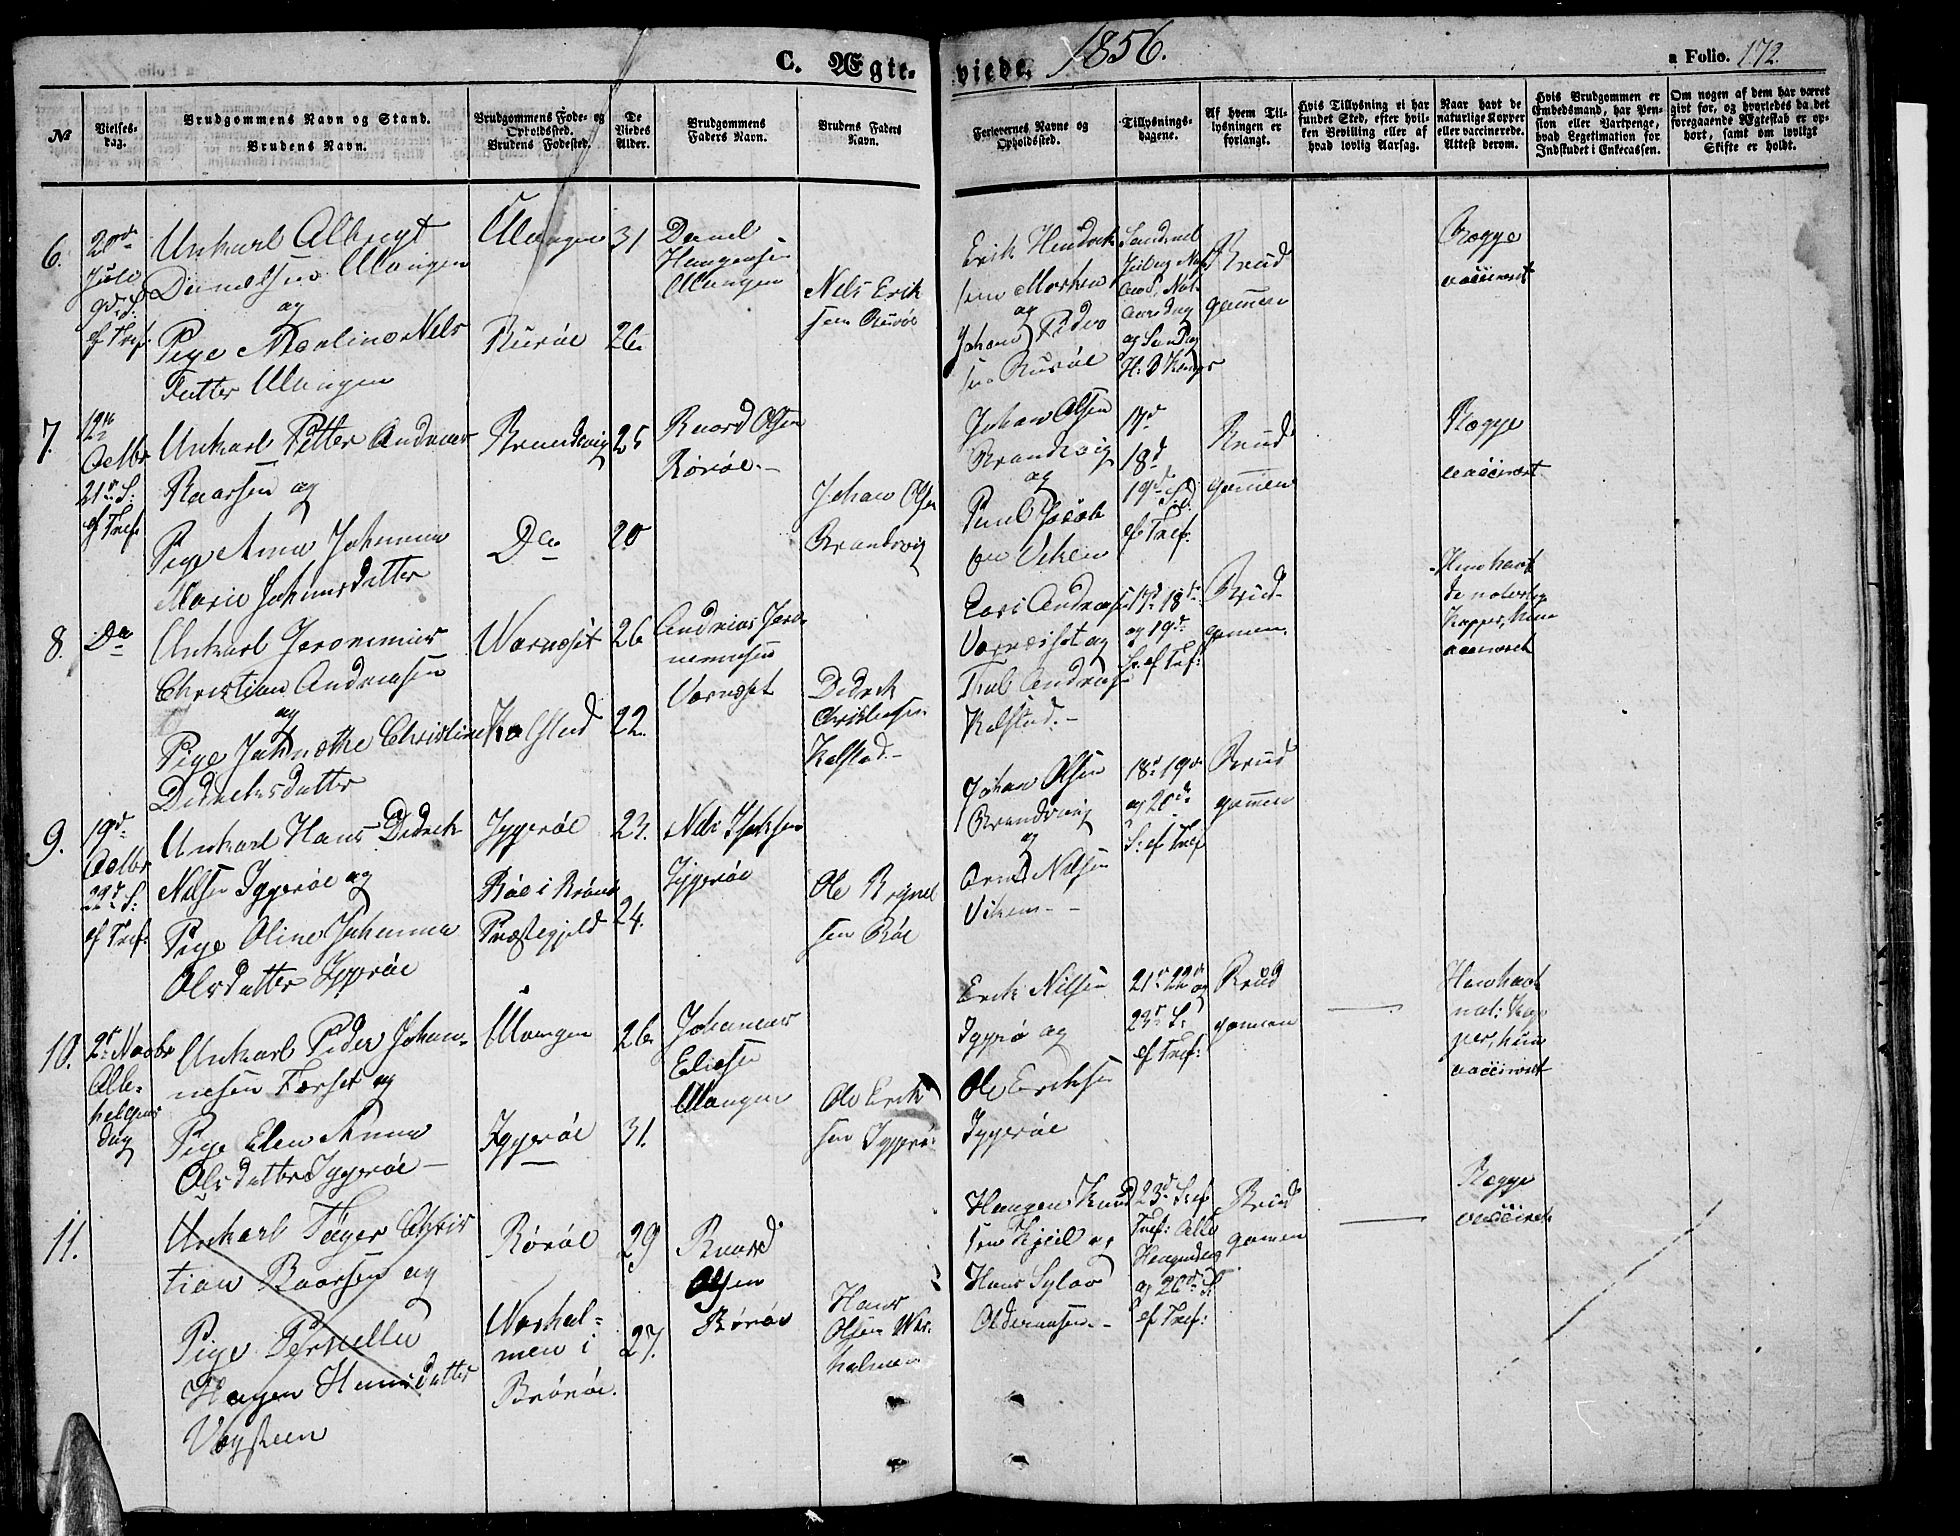 C. Ægte-
viede. 1856.
a Folio. 172.
№
Vielses-
dag.
Brudgommens Navn og Stand.
Brudens Navn.
Brudgommens Føde- og
Opholdssted.
Brudens Fødested.
De
Viedes
Alder.
Brudgommens
Faders Navn.
Brudens Faders
Navn.
Forlovernes Navne og
Opholdssted.
Tillysnings-
dagene.
Af hvem Til-
lysningen er
forlangt.
Hvis Tillysning ei har
fundet Sted, efter hvil-
ken Bevilling eller af
hvad lovlig Aarsag.
Naar havt de
naturlige Kopper
eller vaccinerede.
Attest derom.
Hvis Brudgommen er
Embedsmand, har Pen-
sion eller Vartpenge,
hvad Legitimation for
Indskudet i Enkecassen.
Om nogen af dem har været
gift før, og hvorledes da det
foregaaende Ægteskab er op-
hørt, samt om lovligt
Skifte er holdt.
6.
Jule
ef Tref:
Unkarl Albregt
Danielsen Mangen
og
Pige Nils
Datter Mangen
Mangen
Rurøe
31
26.
Daniel
Haagensen
Mangen
Nils Erik
sen Rurøe
Erik Hendrik
sen
og
Johan Peder
sen Rurøe
og Søndag
Brud
gomen
Begge
vaccineret
7.
12te
Octbr
21de S:
ef Tref:
Unkarl Petter Andreas
Baarsen og
Pige Anna Johanna
Marie Johansdatter
Brandsvig
Do
25
20
Baard Olsen
Rørøe.-
Johan Olsen
Brandsvig
Johan Olsen
Brandsvig
og
Poul
sen Viken
17d
18d
19d S:
ef Tref:
Brud
gomen
Begge
vaccineret
8.
Do
Unkarl Jeronimus
Christian Andreasen
og
Pige Johnethe Christine
Didriksdatter
Varneset
Kalstad
26
22.
Andreas Jero
nimussen
Varneset
Didrik
Christensen
Kalstad.-
Andreas
Varneset og
Andreas
Kalstad.-
17d 18de
og 19d
S: ef Tref:
Brud-
gomen.
Han havt
de naturlige
Kopper, hun
vaccineret
9.
19d
Octbr
22d S:
ef Tref:
Unkarl Hans Didrik
Nilsen Iggerøe og
Pige Oline Johanna
Olsdatter Iggerøe
Iggerøe
Røe i Brønø
Præstegjeld
23.
24.
Nils
Iggerøe
Ole Brynel
sen Røe
Johan Olsen
Brandsvig
og
Arnt Nilsen
Viken--
18d 19de
og 20de
S: ef Tref
Brud
gomen
10.
2d Novbr
Alle-
helgens
dag
Unkarl Peder Johan-
nesen Forset og
Pige Elen Anna
Olsdatter Iggerøe-
Mangen
Iggerøe
26
31.
Johannes
Eliesen
Mangen
Ole Erik
sen Iggerøe
Erik Nilsen
Iggerø og
Ole Eriksen
Iggerøe
21de 22de og
23de S:
ef Tref:
Brud
gomen
Han havt
nat: Kop
per, hun
vaccineret
11.
Unkarl Tøger Chris
tian Baarsen og
Pige Pernelle
Hagen Hansdatter
Rørøe
Norhol-
men i
Brønøe.
29
27.
Baard
Olsen
Rørøe
Hans
Olsen Nor
holmen
Haagen Knud
sen Kjeil og
Hans
Olderaasen.-
23d S: ef
Tref: Alle
Helgensdag
og S
ef Tref:
Brud
gomen
Begge
vaccineret